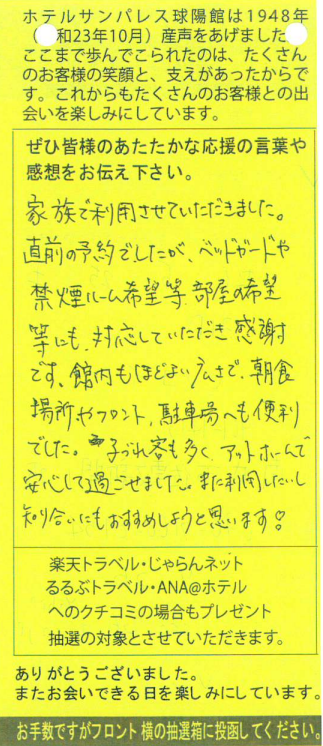 ホテルサンパレス球陽館は1948年
(和23年10月)産声をあげました
ここまで歩んでこられたのは、たくさん
のお客様の笑顔と、支えがあったからで
す。これからもたくさんのお客様との出
会いを楽しみにしています。
ぜひ皆様のあたたかな応援の言葉や
感想をお伝え下さい。
家族で利用させていただきました。
直前の予約でしたが、ベッドガードや
禁煙ルーム希望等、部屋の希望
等にも、対応していただき感謝
です、館内もほどよい広さで、朝食
場所やフロント、駐車場へも便利
でした。子づれ客も多く、アットホームで
安心して過ごせました。また利用したいし
知り合いにもおすすめしようと思います♡
楽天トラベル・じゃらんネット
るるぶトラベル・ANA@ホテル
へのクチコミの場合もプレゼント
抽選の対象とさせていただきます。
ありがとうございました。
またお会いできる日を楽しみにしています。
お手数ですがフロント横の抽選箱に投函してください。